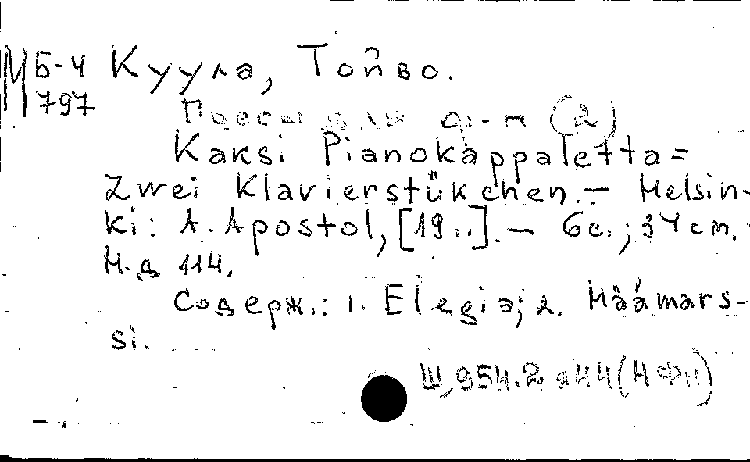 М Б-4 Куула, Тойво.
797
Пьесы для ф-п (2)
Kaksi Pianokappaletta=
Zwei Klavierstükchen.— Helsin-
ki: A. Apostol, [19..].— 6c.; 34 cm.
Н.д 114.
Содерж.: 1. Elegia; 2. Häämars-
si.